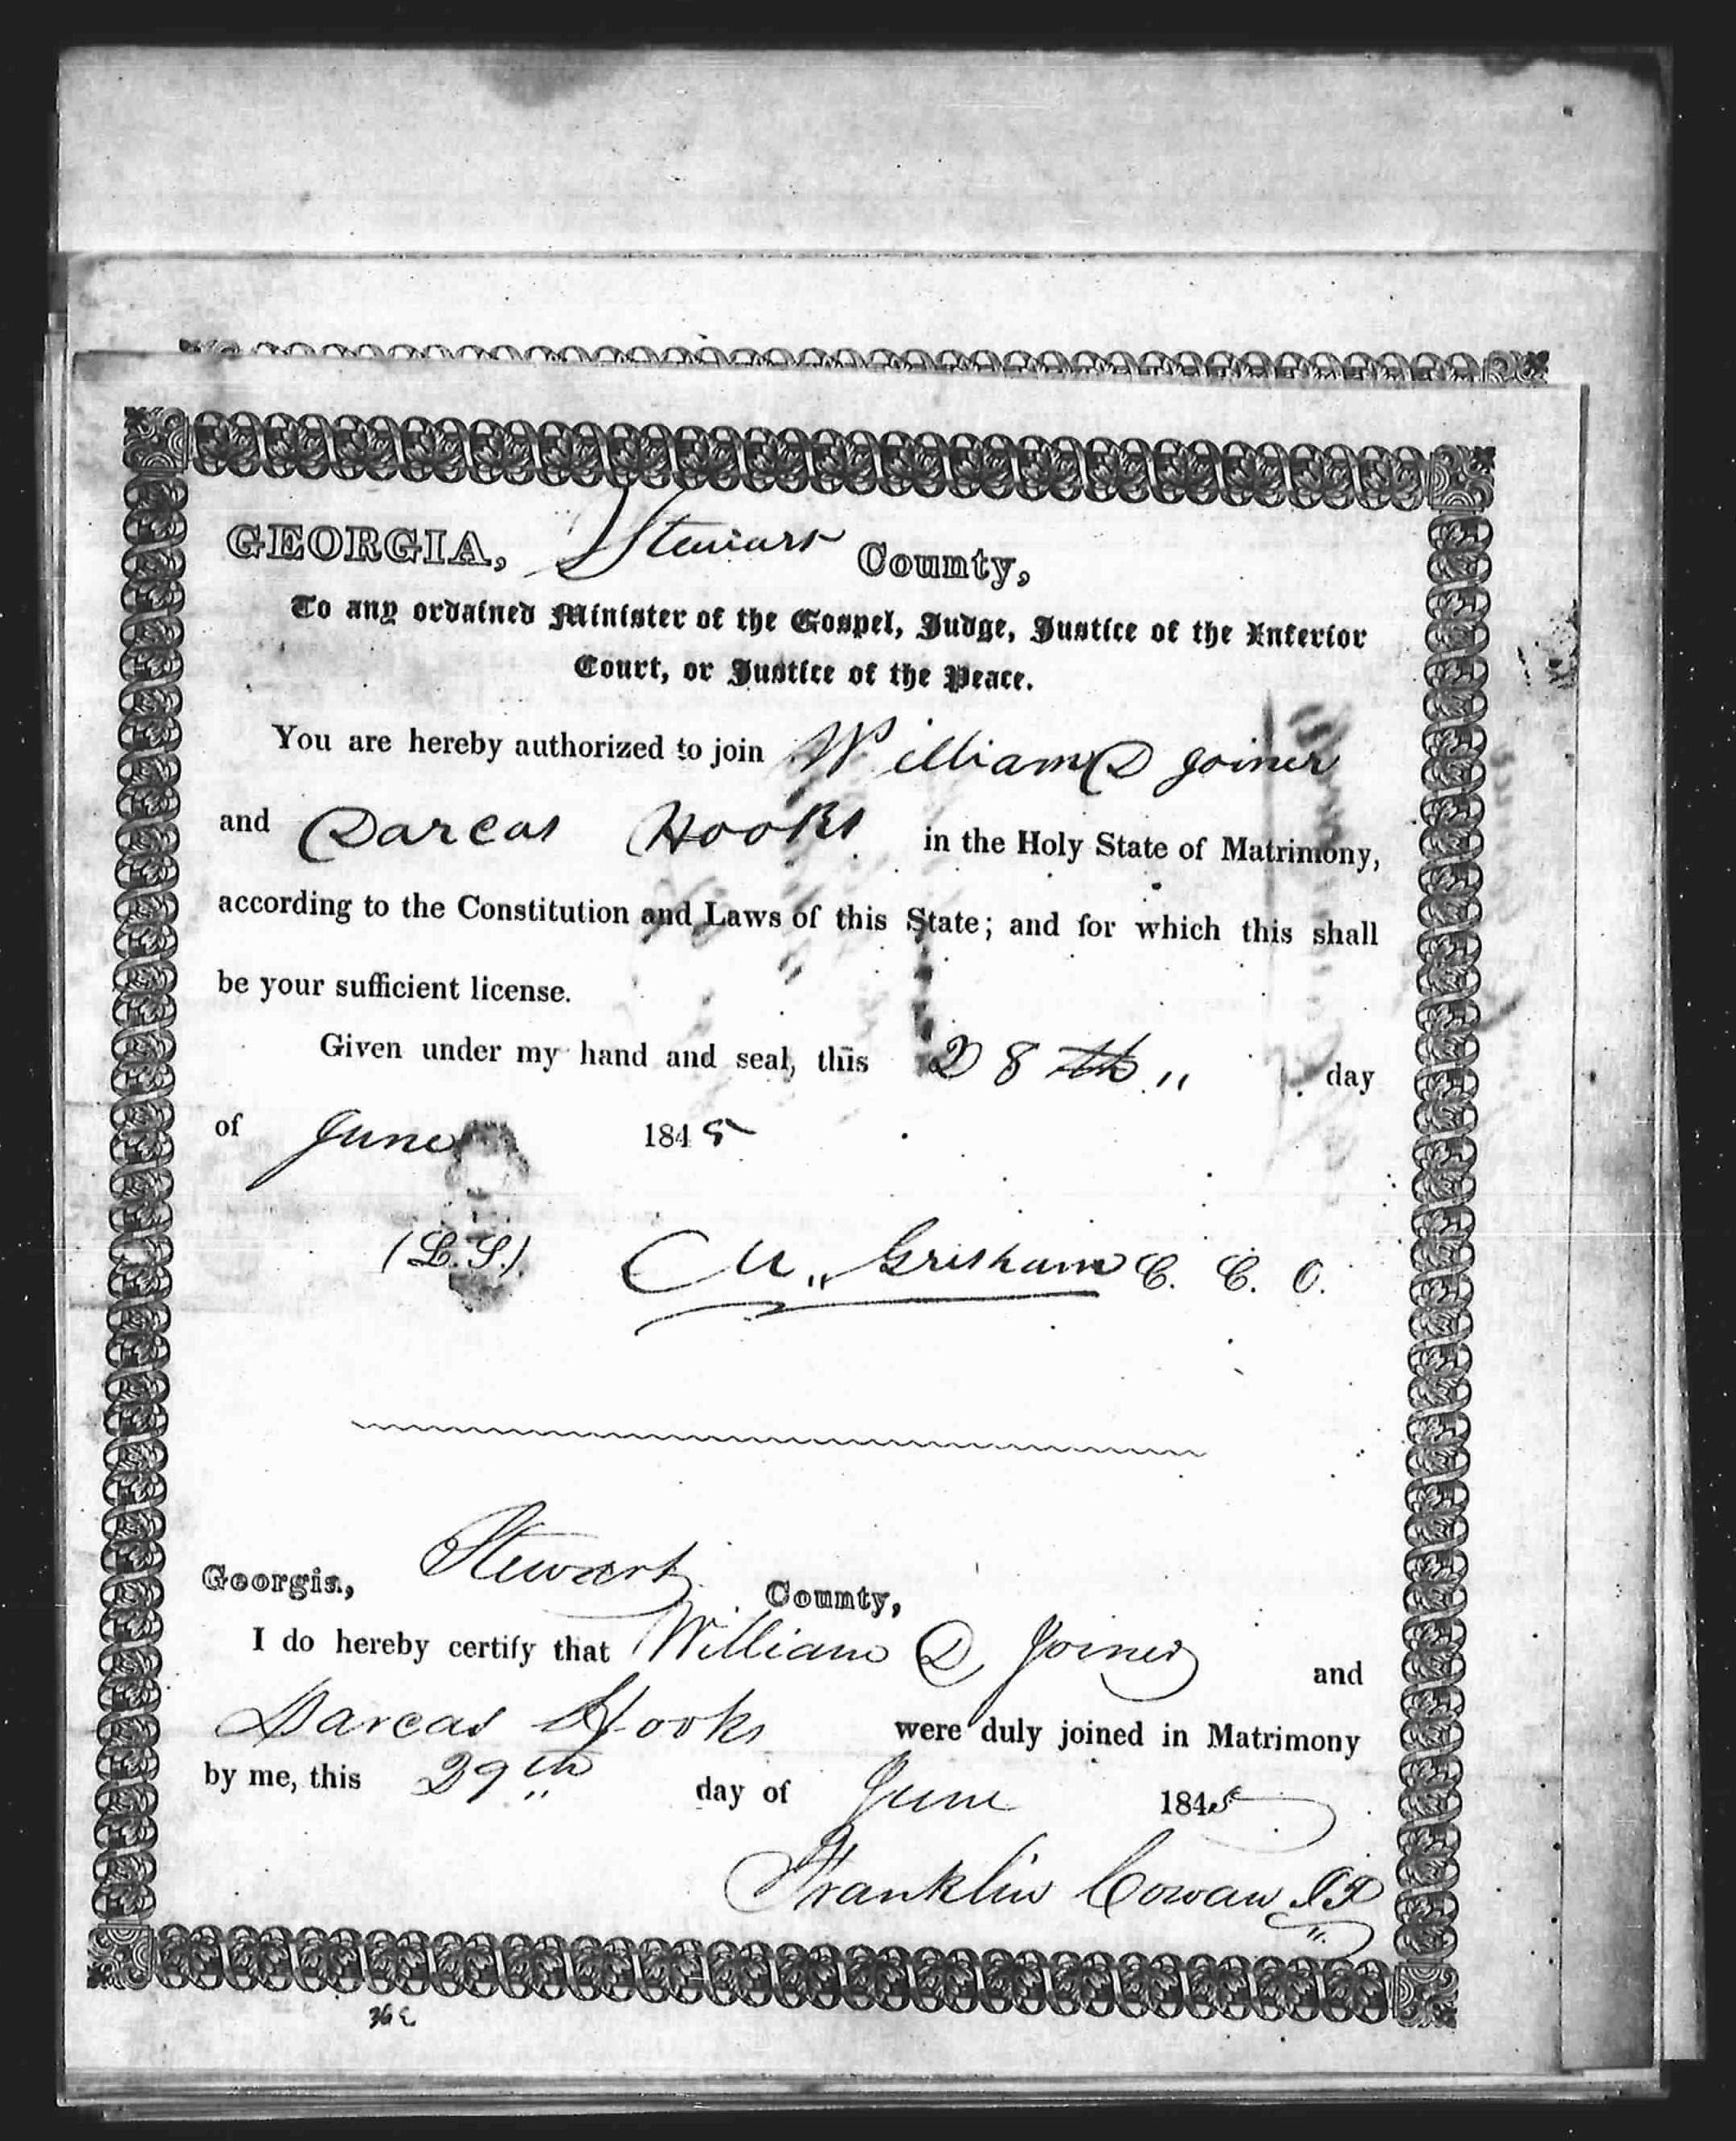 GEORGIA, Stewart County,
To any ordained Minister of the Gospel, Judge, Justice of the Inferior
Court, or Justice of the Peace.
You are hereby authorized to join William D Joiner
and Darcas Hooks in the Holy State of Matrimony,
according to the Constitution and Laws of this State; and for which this shall
be your sufficient license.
Given under my hand and seal, this 28th day
of June 1845
(L.S.) C M Grisham C. C. O.
Georgia, Stewart County,
I do hereby certify that William D Joiner and
Darcas Hooks were duly joined in Matrimony
by me, this 29th day of June 1845
Franklin Cowan JP